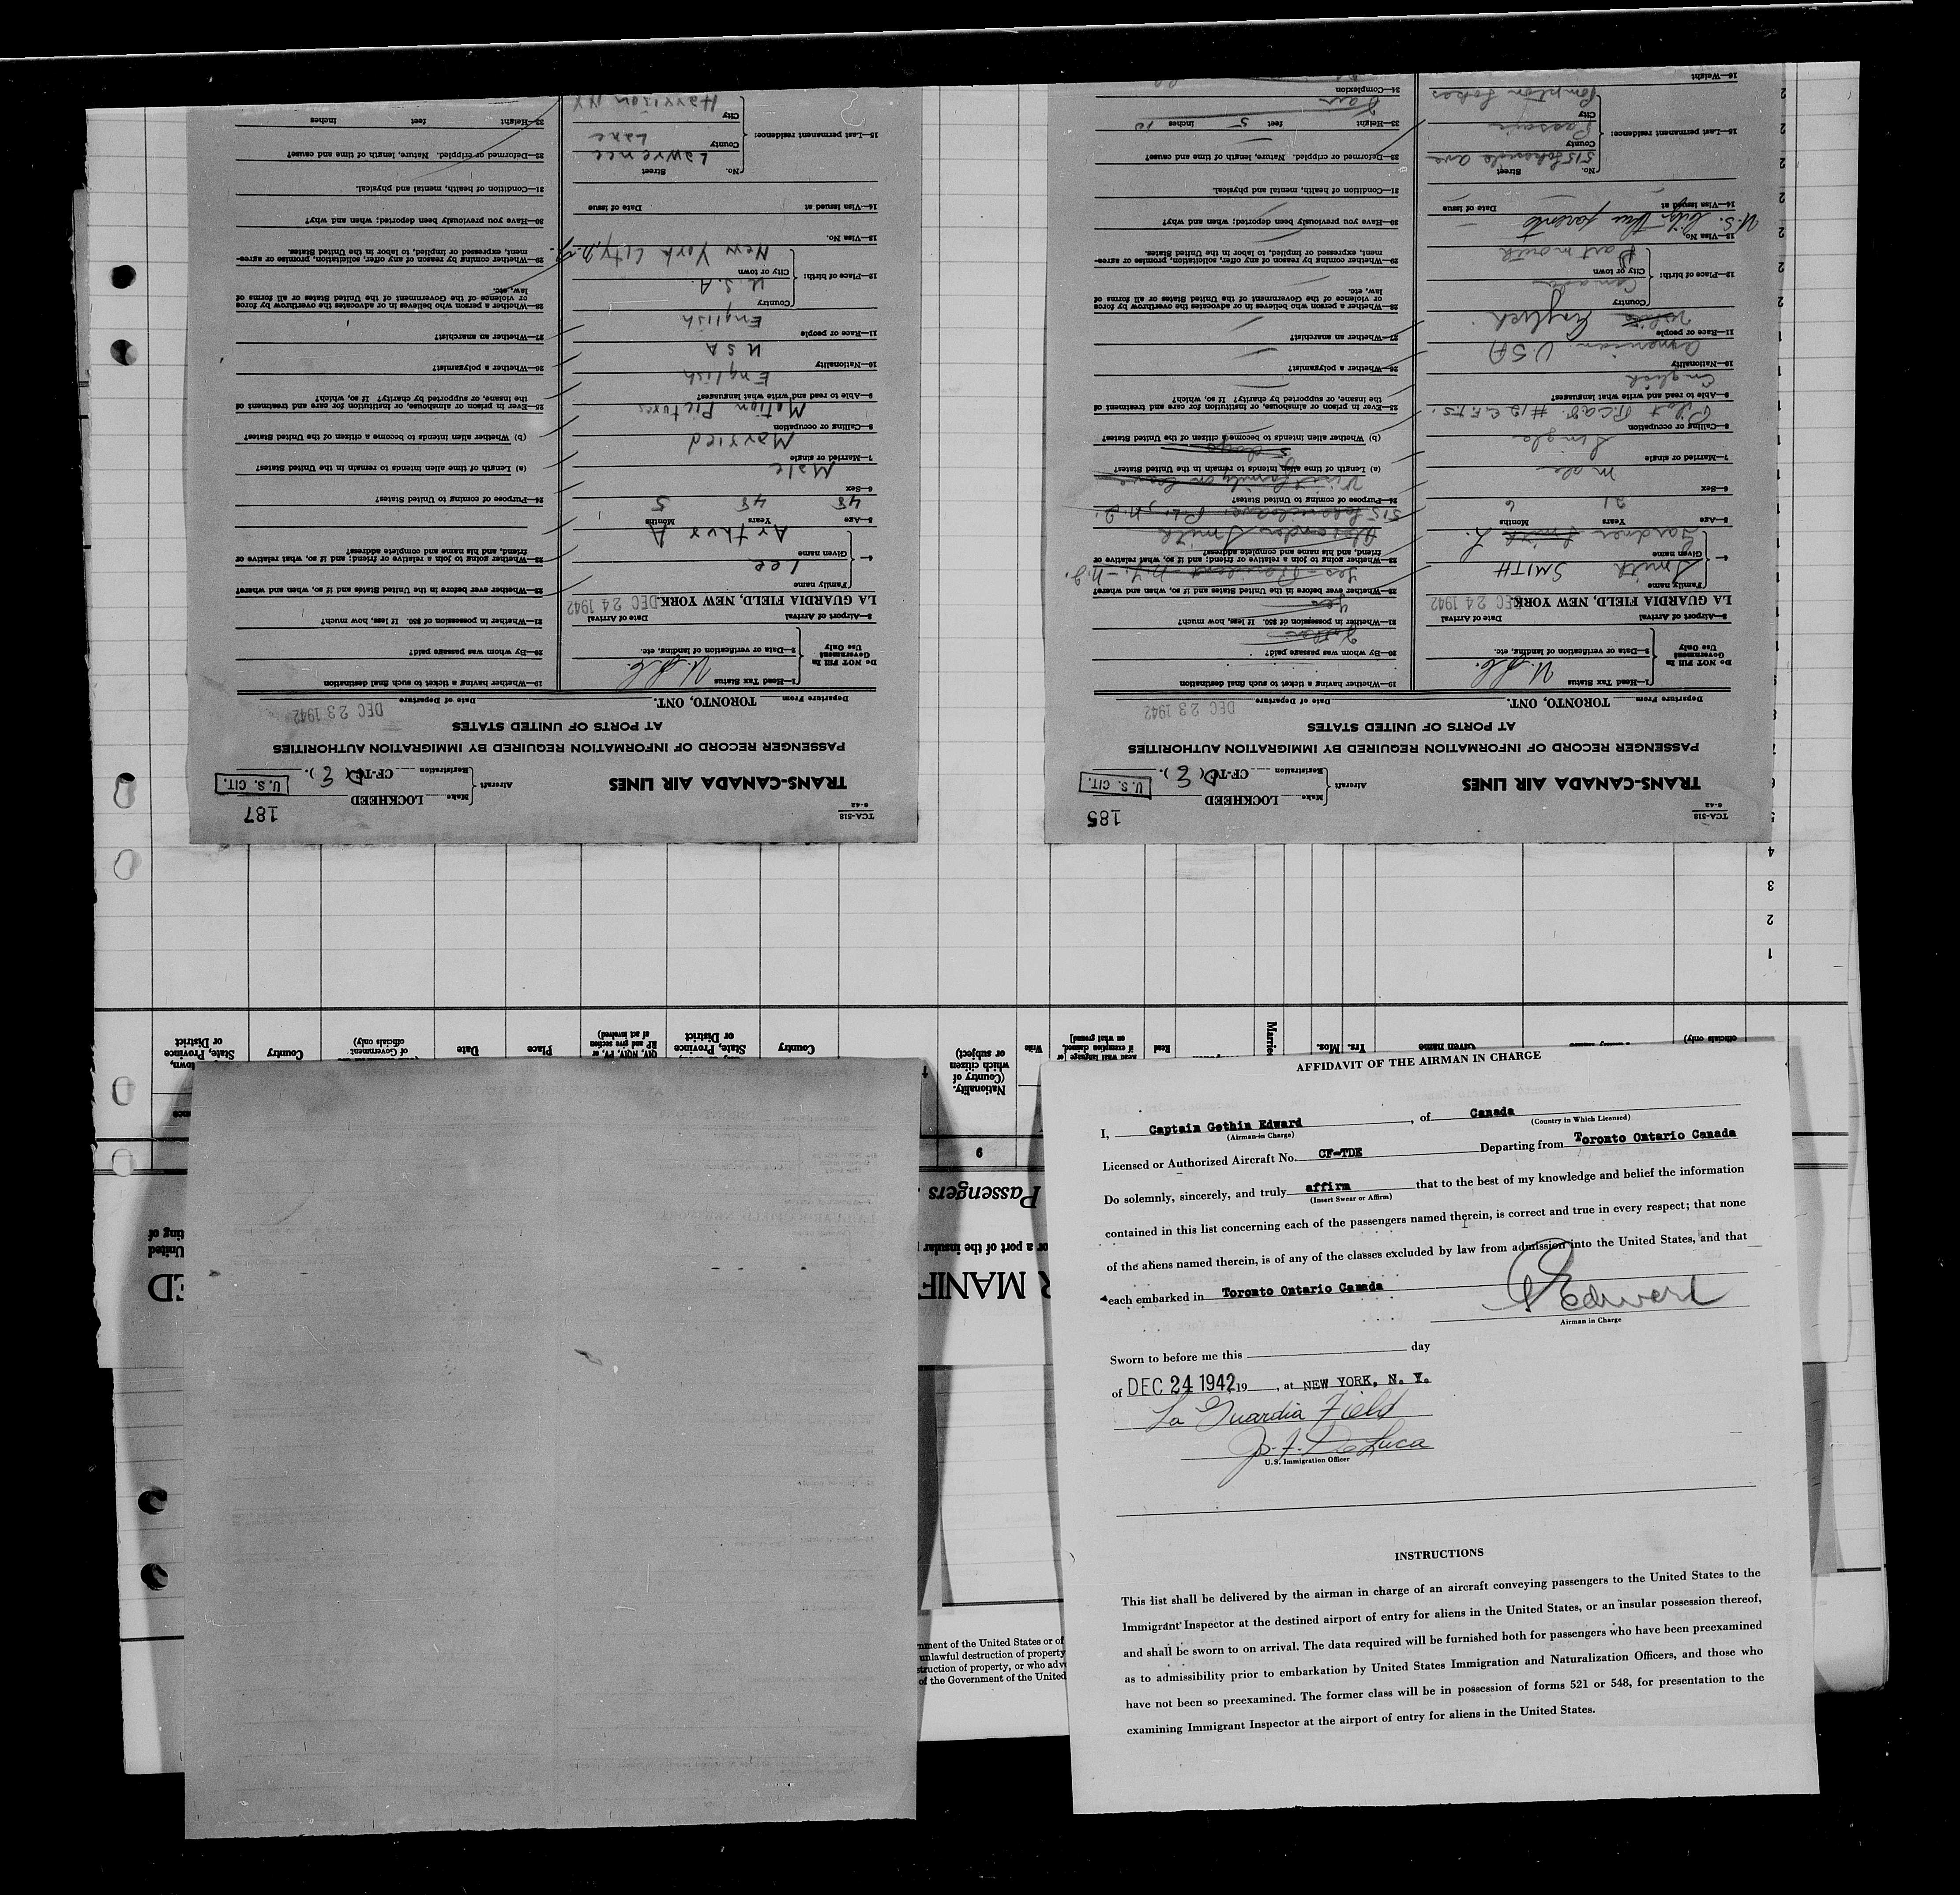 TCA-518
6-42
187
TRANS-CANADA AIR LINES
Aircraft
Make LOCKHEED
Registration CF-TD( E ).
U. S. CIT.
PASSENGER RECORD OF INFORMATION REQUIRED BY IMMIGRATION AUTHORITIES
AT PORTS OF UNITED STATES
Departure From TORONTO, ONT. Date of Departure DEC 23 1942
Do NOT Fill In
Government
Use Only
1—Head Tax Status
2—Data or verification of landing, etc.
U.S.C.
3—Airport of Arrival Date of Arrival
LA GUARDIA FIELD, NEW YORK. DEC 24 1942
4—
Family name
Lee
Given name
Arthur A
5—Age Years Months
48 48 5
6—Sex
Male
7—Married or single
Married
8—Calling or occupation
Motion Pictures
9—Able to read and write what languages?
English
10—Nationality
USA
11—Race or people
English
12—Place of birth:
Country
U.S.A.
City or town
New York City, N.Y.
13—Visa No.
14—Visa issued at Date of issue
15—Last permanent residence:
No. Street
Lawrence
County
Lane
City
Harrison NY
19—Whether having a ticket to such final destination
20—By whom was passage paid?
21—Whether in possession of $50. If less, how much?
22—Whether ever before in the United States and if so, when and where?
23—Whether going to join a relative or friend; and if so, what relative or
friend, and his name and complete address?
24—Purpose of coming to United States?
(a) Length of time alien intends to remain in the United States?
(b) Whether alien intends to become a citizen of the United States?
25—Ever in prison or almshouse, or institution for care and treatment of
the insane, or supported by charity? If so, which?
26—Whether a polygamist?
27—Whether an anarchist?
28—Whether a person who believes in or advocates the overthrow by force
or violence of the Government of the United States or all forms of
law, etc.
29—Whether coming by reason of any offer, solicitation, promise or agree-
ment, expressed or implied, to labor in the United States.
30—Have you previously been deported; when and why?
31—Condition of health, mental and physical.
32—Deformed or crippled. Nature, length of time and cause?
33—Height feet inches
TCA-518
6-42
185
TRANS-CANADA AIR LINES
Aircraft
Make LOCKHEED
Registration CF-TD( E ).
U. S. CIT.
PASSENGER RECORD OF INFORMATION REQUIRED BY IMMIGRATION AUTHORITIES
AT PORTS OF UNITED STATES
Departure From TORONTO, ONT. Date of Departure DEC 23 1942
Do NOT Fill In
Government
Use Only
1—Head Tax Status
2—Data or verification of landing, etc.
U.S.C.
3—Airport of Arrival Date of Arrival
LA GUARDIA FIELD, NEW YORK. DEC 24 1942
4—
Family name
Smith SMITH
Given name
Gardner Smith L.
5—Age Years Months
21 6
6—Sex
Male
7—Married or single
Single
8—Calling or occupation
Pilot R.C.A.F. #12 E.F.T.S.
9—Able to read and write what languages?
English
10—Nationality
American USA
11—Race or people
White English
12—Place of birth:
Country
Canada
City or town
Dartmouth
13—Visa No.
U.S. Citz. thru parents
14—Visa issued at Date of issue
15—Last permanent residence:
No. Street
515 Lakeside ave
County
Passaic
City
Pompton Lakes
16—Weight
19—Whether having a ticket to such final destination
20—By whom was passage paid?
21—Whether in possession of $50. If less, how much?
Yes
22—Whether ever before in the United States and if so, when and where?
Yes - Resident - N.J.
23—Whether going to join a relative or friend; and if so, what relative or
friend, and his name and complete address?
Alexander Smith
515 Lakeside ave. P.L., N.J.
24—Purpose of coming to United States?
Visit family on leave
(a) Length of time alien intends to remain in the United States?
5 days
(b) Whether alien intends to become a citizen of the United States?
25—Ever in prison or almshouse, or institution for care and treatment of
the insane, or supported by charity? If so, which?
26—Whether a polygamist?
27—Whether an anarchist?
28—Whether a person who believes in or advocates the overthrow by force
or violence of the Government of the United States or all forms of
law, etc.
29—Whether coming by reason of any offer, solicitation, promise or agree-
ment, expressed or implied, to labor in the United States.
30—Have you previously been deported; when and why?
31—Condition of health, mental and physical.
32—Deformed or crippled. Nature, length of time and cause?
33—Height feet 5 inches 10
34—Complexion
Fair
1
2
3
4
State, Province
or District
Country
of Government
officials only)
Date
Place
QIV, NQIV, PV, or
RP and give section
of act involved)
State, Province
or District
Country
Nationality.
(Country of
which citizen
or subject)
Write
Read what language [or
if exemption claimed,
on what ground]
Read
Married
Yrs. Mos.
Given name
officials only)
9
Passengers
or a port of the insular
R MANIF
nment of the United States or of
unlawful destruction of property
struction of property, or who adv
of the Government of the United
AFFIDAVIT OF THE AIRMAN IN CHARGE
I, Captain Gethin Edward, of Canada
(Airman-in Charge) (Country in Which Licensed)
Licensed or Authorized Aircraft No. CF-TDE Departing from Toronto Ontario Canada
Do solemnly, sincerely, and truly affirm that to the best of my knowledge and belief the information
(Insert Swear or Affirm)
contained in this list concerning each of the passengers named therein, is correct and true in every respect; that none
of the aliens named therein, is of any of the classes excluded by law from admission into the United States, and that
each embarked in Toronto Ontario Canada
G Edward
Airman in Charge
Sworn to before me this day
of DEC 24 1942 19 , at NEW YORK, N. Y.
La Guardia Field
Jos. F. DeLuca
U.S. Immigration Officer
INSTRUCTIONS
This list shall be delivered by the airman in charge of an aircraft conveying passengers to the United States to the
Immigrant Inspector at the destined airport of entry for aliens in the United States, or an insular possession thereof,
and shall be sworn to on arrival. The data required will be furnished both for passengers who have been preexamined
as to admissibility prior to embarkation by United States Immigration and Naturalization Officers, and those who
have not been so preexamined. The former class will be in possession of forms 521 or 548, for presentation to the
examining Immigrant Inspector at the airport of entry for aliens in the United States.